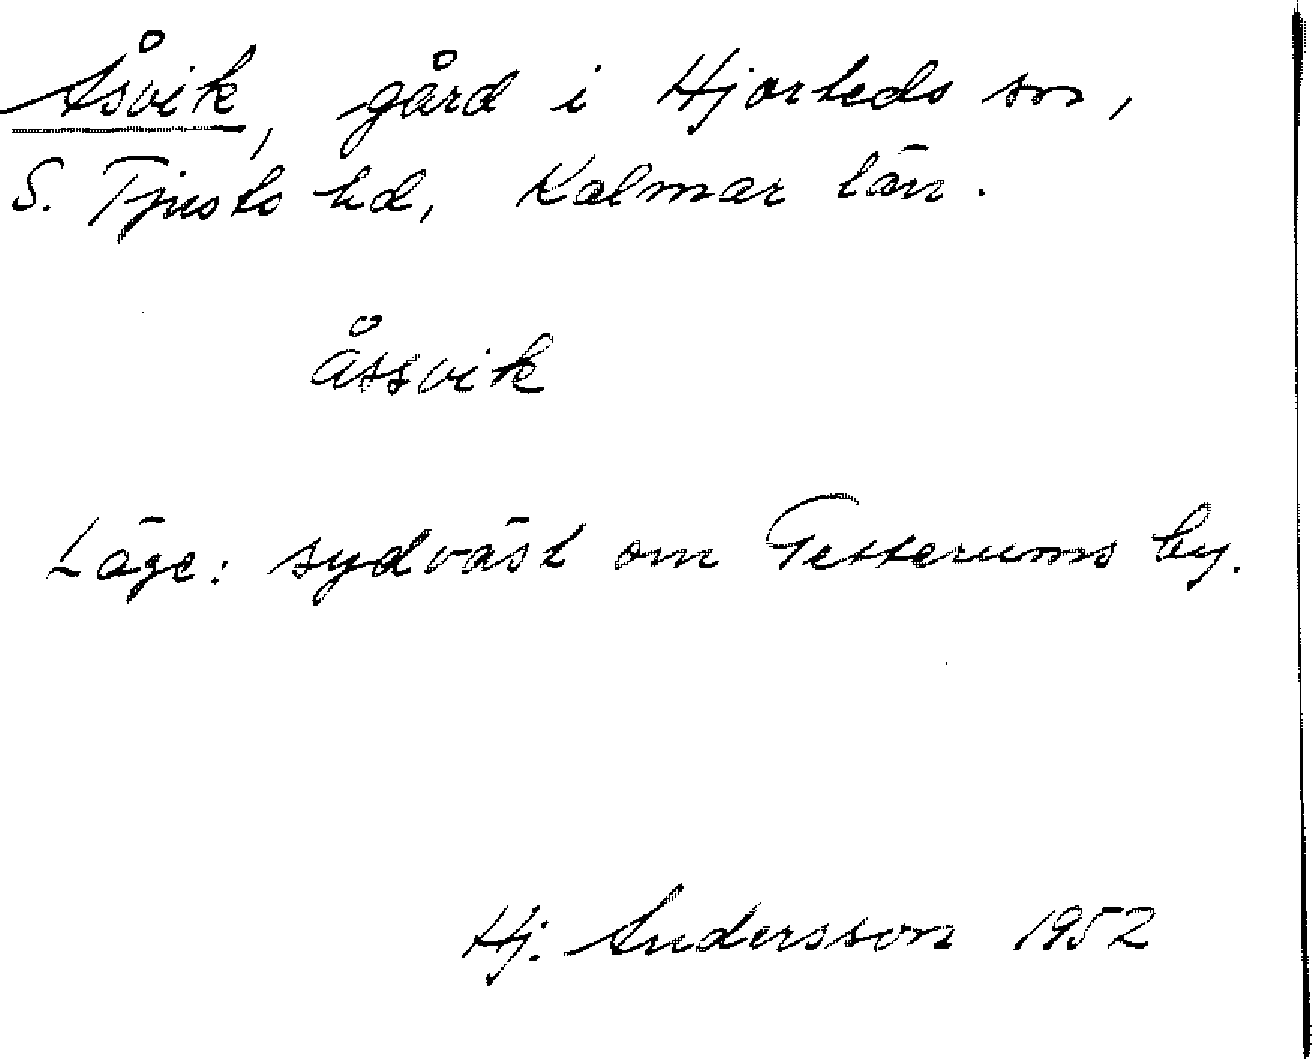 Åsvik, gård i Hjorteds sn,
S. Tjusts hd, Kalmar län.
åssvik
Läge: sydväst om Tetterums by.
Hj. Andersson 1952